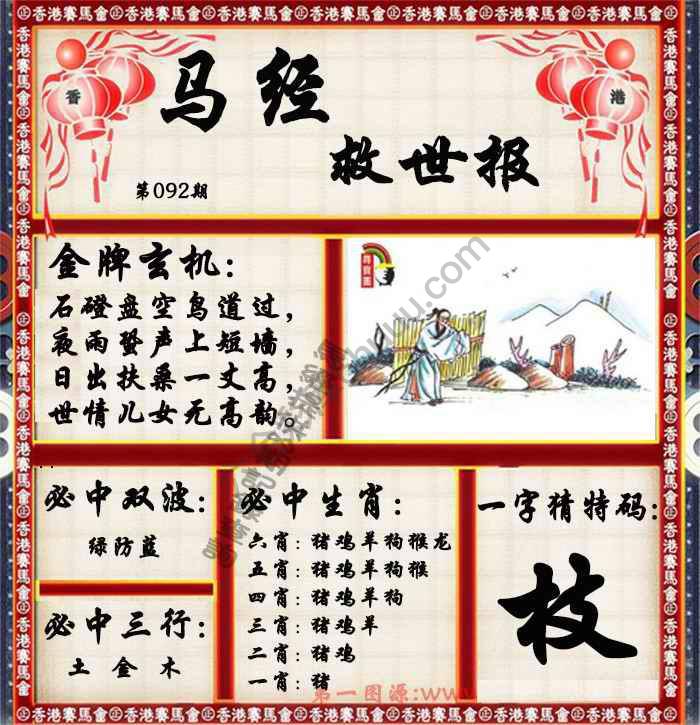 香港賽馬會
香
港
马经
救世报
第092期
金牌玄机：
石磴盘空鸟道过，
夜雨蛩声上短墙，
日出扶桑一丈高，
世情儿女无高韵。
必中双波：
绿防蓝
必中三行：
土 金 木
必中生肖：
六肖：猪鸡羊狗猴龙
五肖：猪鸡羊狗猴
四肖：猪鸡羊狗
三肖：猪鸡羊
二肖：猪鸡
一肖：猪
一字猜特码：
枝
第一图源:www